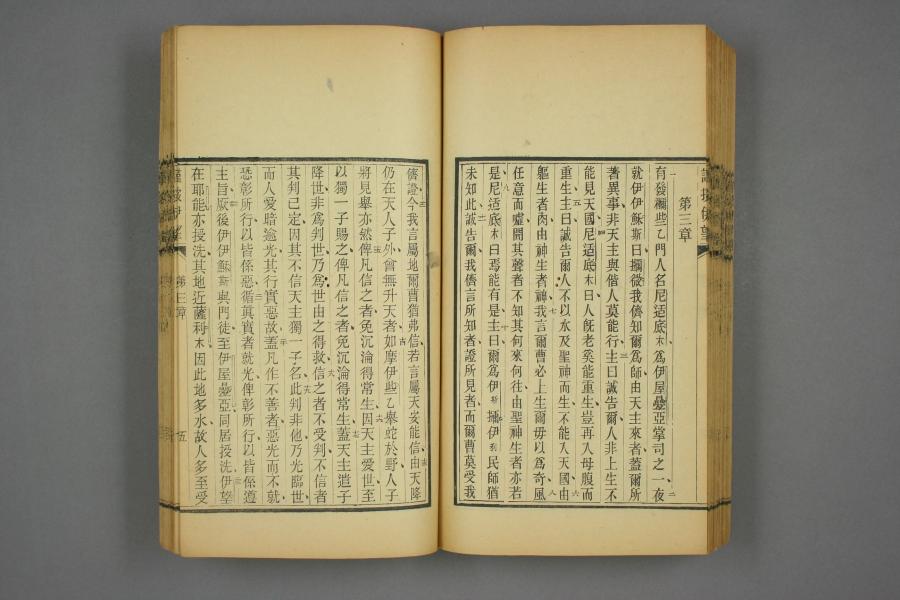 第三章
育發禰些乙門人名尼适底木爲伊屋疊亞掌司之一夜
就伊伊穌斯曰攔微我儕知爾爲師由天主來者蓋爾所
著異事非天主與偕人莫能行主曰誠告爾人非上生不
能見天國尼适底木曰人旣老奚能重生豈再入母腹而
重生主曰誠告爾人不以水及聖神而生不能入天國由
軀生者肉由神生者神我言爾曹必上生爾毋以爲奇風
任意而噓聞其聲者不知其何來何往由聖神生者亦若
是尼适底木曰焉能有是主曰爾爲伊斯攝伊利民師猶
未知此誠告爾我儕言所知者證所見者而爾曹莫受我
儕證今我言屬地爾曹猶弗信若言屬天安能信由天降
仍在天人子外曾無升天者如摩伊些乙舉蛇於野人子
將見舉亦然俾凡信之者免沉淪得常生因天主愛世至
以獨一子賜之俾凡信之者免沉淪得常生蓋天主遣子
降世非爲判世乃爲世由之得救信之者不受判不信者
其判已定因其不信天主獨一子名此判非他乃光臨世
而人愛暗逾光其行實惡故蓋凡作不善者惡光而不就
恐彰所行以皆係惡循眞實者就光俾彰所行以皆係遵
主旨厥後伊伊穌斯與門徒至伊屋疊亞同居授洗伊望
在耶能亦授洗其地近薩科木因此地多水故人多至受
第三章
五